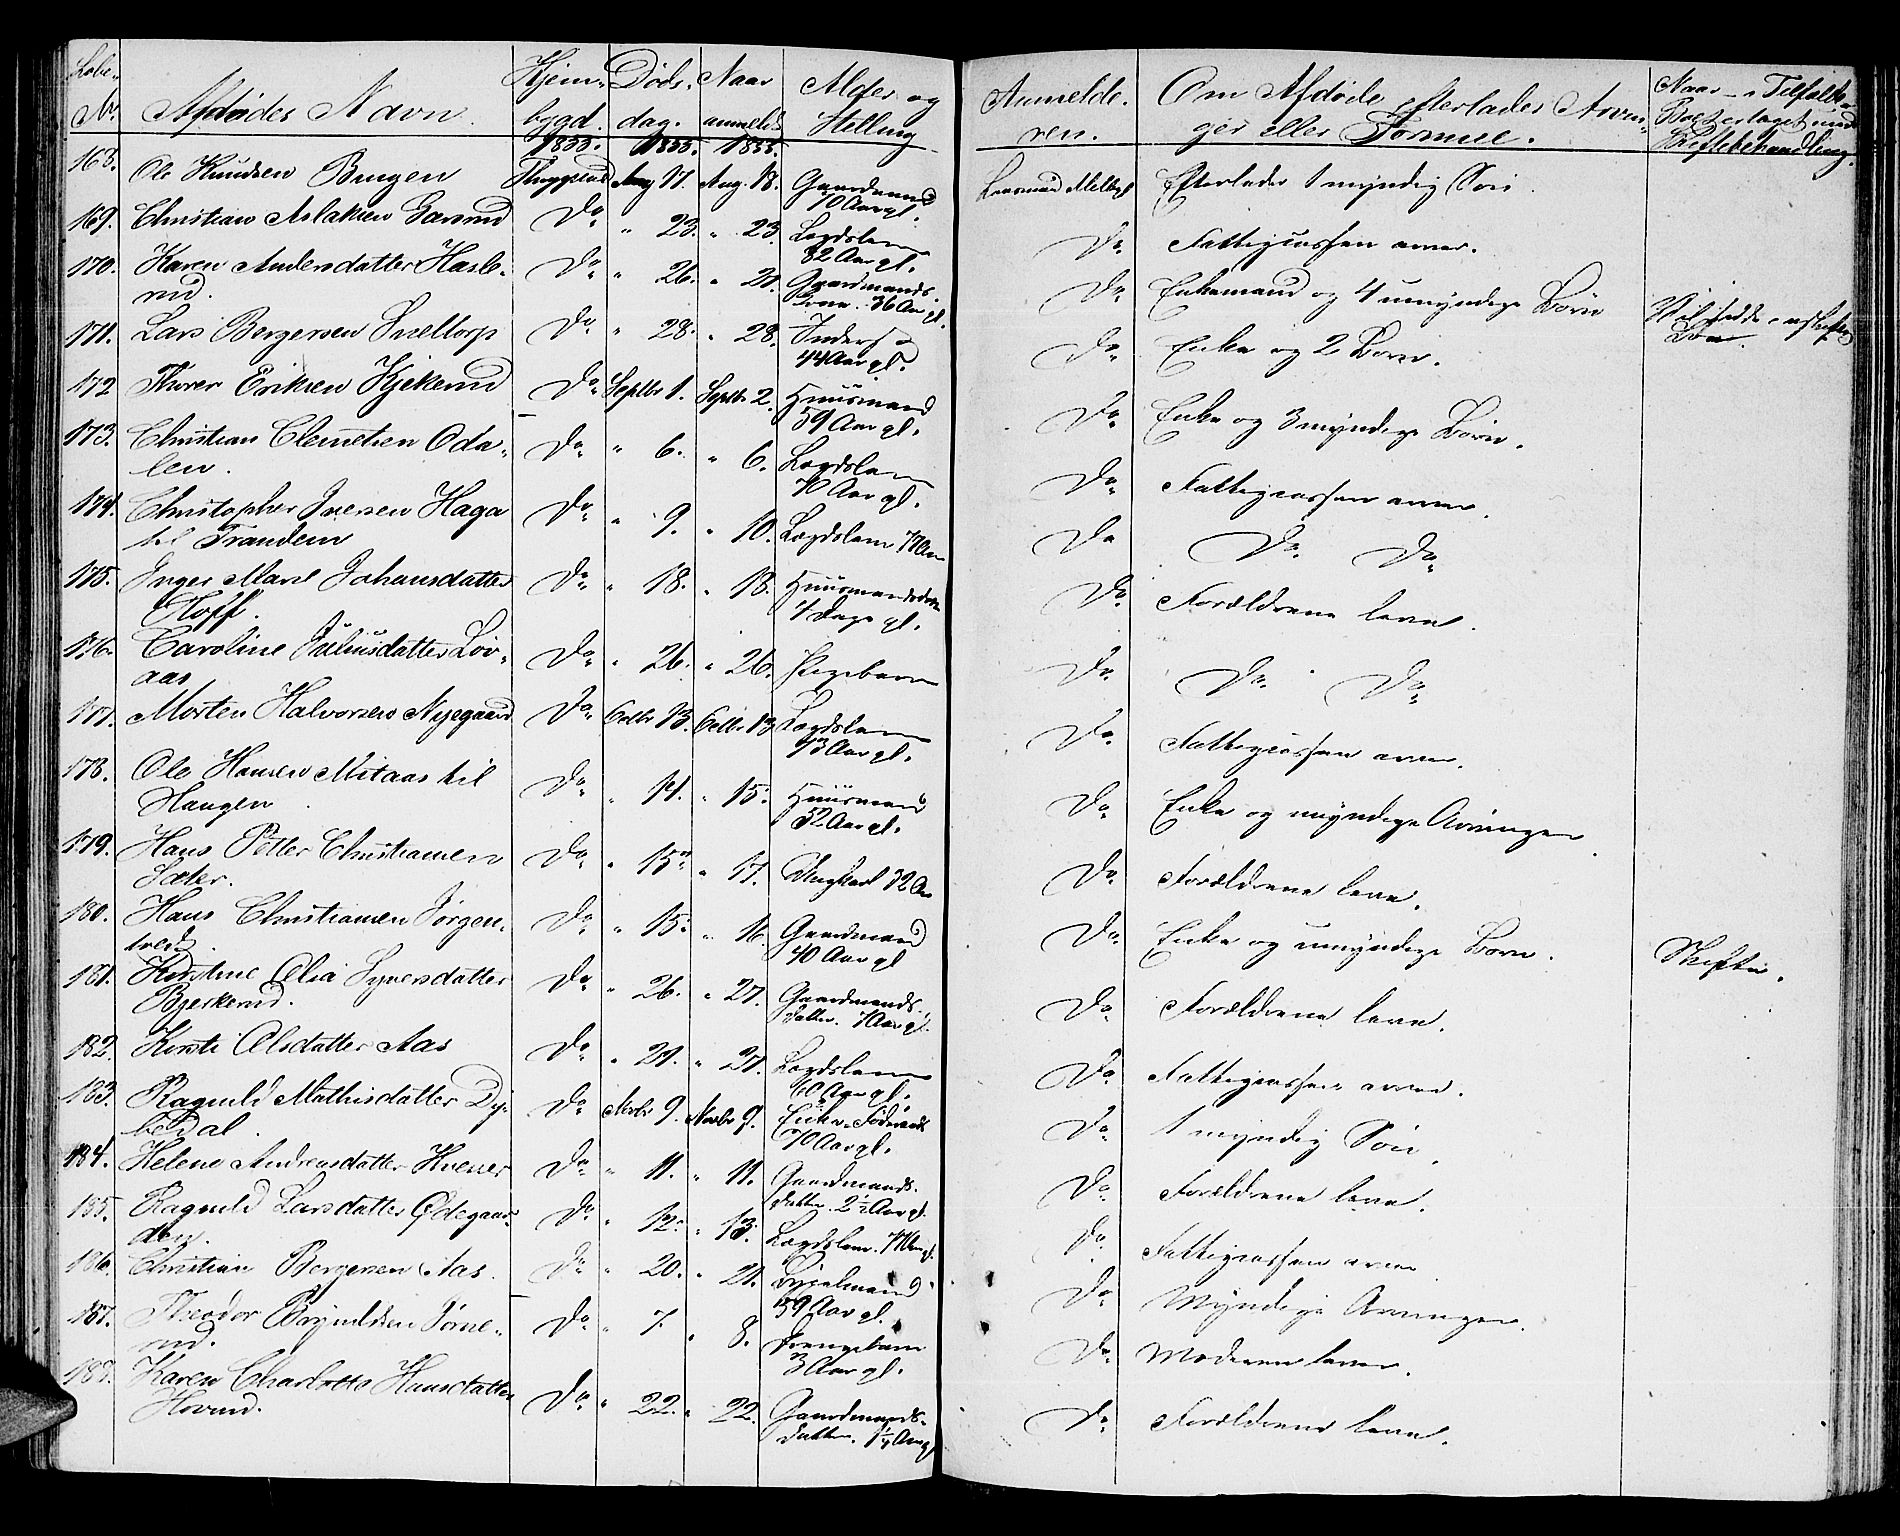 Løbe-
Nr. Afdødes Navn. Hjem-bygd. Døds-dag. Naar anmeldt Alder og Stilling Anmelde-ren. Om Afdøde efterlader Arvin-ger eller Formue. Naar - i Tilfælde -
Skiftebehandling.
1855. 1855. 1855.
168. Ole Knudsen Brugen Aug 17. Aug. 18. Gaardmand 70 Aar gl. Lensmand Melby Efterlader 1 myndig Søn.
169. Christian Aslaksen Do " 23. " 23. Lægdslem 82 Aar gl. Do Fattigcassen arver.
170. Karen Andersdatter Hasle-
rud. Do " 26. " 27. Gaardmands-
kone. 36 Aar gl. Do Enkemand og 4 umyndige Børn
171. Lars Bergersen Sneltorp Do " 28. " 28. Inderst 44 Aar gl. Do Enke og 2 Børn.
172 Thorer Eriksen Kjekerud Do Septbr 1. Septbr 2. Huusmand 59 Aar gl. Do Enke og 3 myndige Børn.
173. Christian Clemetsen Oda-
len. Do " 6. " 6. Lægdslem 70 Aar gl. Do Fattigcassen arver.
174. Christopher Iversen Haga
til Trandem Do " 9. " 10. Lægdslem 77 Aar Do Do Do
175. Inger Marie Johansdatter
Hoff. Do " 18. " 18. Huusmandsdatter
4 Dage gl. Do Forældrene leve.
176. Caroline Juliusdatter Løv-
aas Do " 26. " 26. Pigebarn Do Do Do
177. Morten Halvorsen Nyegaard Do Octbr 13. Octbr 13 Lægdslem 73 Aar gl. Do Fattigcassen arver.
178. Ole Hansen Mitaas til
Haugen Do " 14. " 15. Huusmand 52 Aar gl. Do Enke og myndige Arvinger
179. Hans Petter Christiansen
Sæter. Do " 15. " 17. Ungkarl 32 Aar Do Forældrene leve.
180. Hans Christiansen Jørgen-
tvedt. Do " 15. " 16. Gaardmand 40 Aar gl Do Enke og umyndige Børn. Skifte.
181. Kirstine Olia Syversdatter
Bjerkerud. Do " 26. " 27. Gaardmands-
datter. 7 Aar gl. Do Forældrene leve.
182. Kirsti Olsdatter Aas Do " 27. " 27. Lægdslem 60 Aar gl. Do Fattigcassen arver.
183. Ragnild Mathisdatter Dy-
bedal. Do Novbr 9. Novbr 9. Enke. 70 Aar gl. Do 1 myndig Søn.
184. Helene Andreasdatter Hvener Do " 11. " 11. Gaardmands-
datter. 2½ Aar gl. Do Forældrene leve.
185. Ragnild Larsdatter Ødegaar-
den. Do " 12. " 13. Lægdslem. Do Fattigcassen arver
186. Christian Bergersen Aas. Do " 20. " 21. 59 Aar gl. Do Myndige Arvinger.
187. Theodor Brynildsen Jørne-
rud. Do " 7. " 8. Drengebarn 3 Aar gl. Do Moderen lever.
188. Karen Charlotte Hansdatter
Hovrud. Do " 22. " 22. Gaardmands-
datter. 1¼ Aar gl Do Forældrene leve.